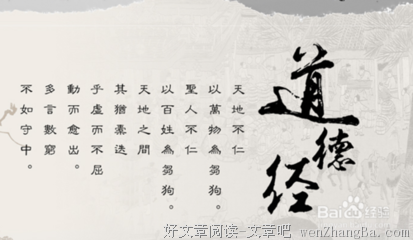 道德经
天地不仁
以萬物為芻狗。
聖人不仁
以百姓為芻狗。
天地之間
其猶橐迭
乎虛而不屈
動而愈出。
多言數窮
不如守中。
Bai 经验
好文章阅读-文章吧 wenZhangBa.com